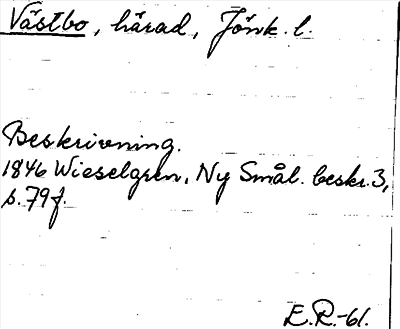 Västbo, härad, Jönk. l.
Beskrivning.
1846 Wieselgren, Ny Smål. beskr. 3,
s. 79f.
E.R.-61.